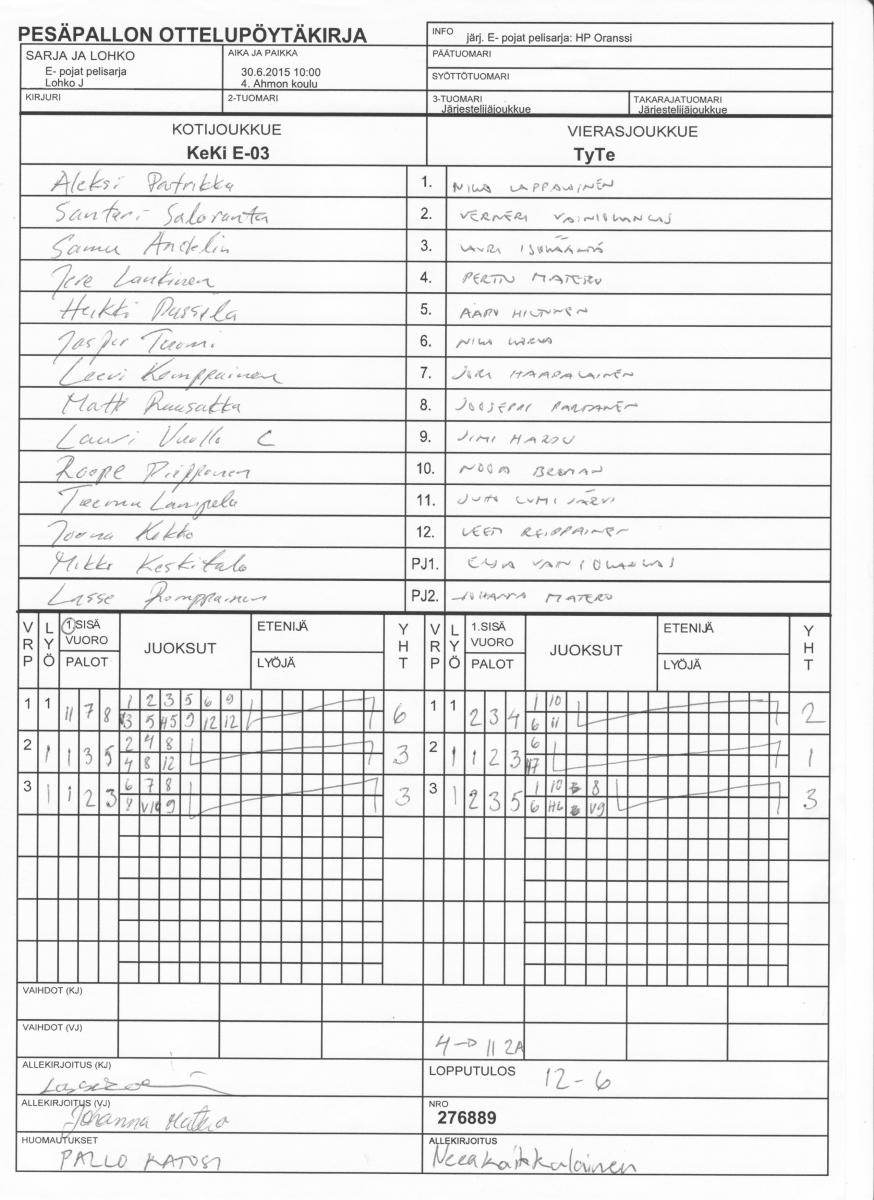 PESÄPALLON OTTELUPÖYTÄKIRJA
INFO järj. E- pojat pelisarja: HP Oranssi
SARJA JA LOHKO
E- pojat pelisarja
Lohko J
AIKA JA PAIKKA
30.6.2015 10:00
4. Ahmon koulu
PÄÄTUOMARI
SYÖTTÖTUOMARI
KIRJURI
2-TUOMARI
3-TUOMARI
Järjestelijäjoukkue
TAKARAJATUOMARI
Järjestelijäjoukkue
KOTIJOUKKUE
KeKi E-03
VIERASJOUKKUE
TyTe
Aleksi Patrikka 1. NIILO LAPPALAINEN
Santeri Saloranta 2. VERNERI
Samu Andelin 3. LAURI
Jere Lankinen 4. PERTTU MATERO
Heikki 5. AARO HILTUNEN
Jasper Tuomi 6.
Leevi Komppainen 7. HAAPALAINEN
Matti Ruusakka 8. JOOSEPPI PARTANEN
Lauri Vuollo C 9. JIMI HARJU
Roope Piipponen 10. NOOA
Teemu Lampela 11. JUHO LUMIJÄRVI
Joona Kokko 12. VEETI REIPPAINEN
Mikko Keskitalo PJ1.
Lasse Romppainen PJ2. JOHANNA MATERO
VRP LYÖ 1.SISÄ VUORO PALOT JUOKSUT ETENIJÄ LYÖJÄ YHT VRP LYÖ 1.SISÄ VUORO PALOT JUOKSUT ETENIJÄ LYÖJÄ YHT
1 1 11 7 8 1 2 3 5 6 9 6 1 1 2 3 4 1 10 2
5 H5 9 12 12 6 11
2 1 1 3 5 2 4 8 3 2 1 1 2 3 6 1
4 8 12 H7
3 1 1 2 3 6 7 8 3 3 1 2 3 5 1 10 8 3
8 V10 9 6 H6 V9
VAIHDOT (KJ)
VAIHDOT (VJ)
4→ 11 2A
ALLEKIRJOITUS (KJ)
LOPPUTULOS 12-6
ALLEKIRJOITUS (VJ) Johanna Matero
NRO
276889
HUOMAUTUKSET
PALLO KATOSI
ALLEKIRJOITUS
Neea Kaikkalainen